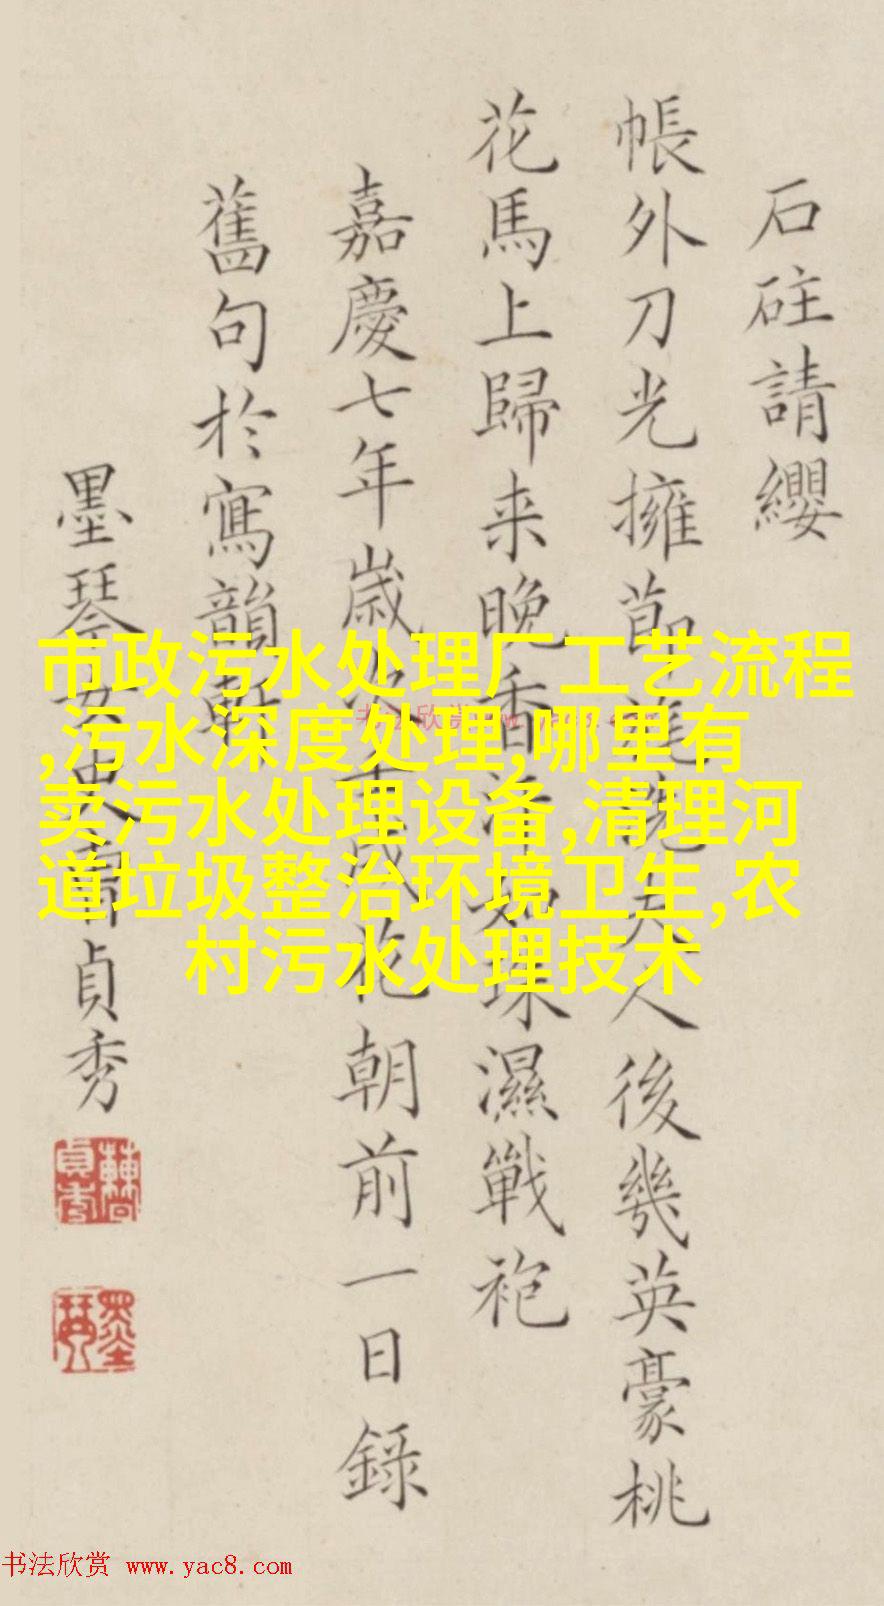 石砫請纓
帳外刀光擁節旄洗夫人後幾英豪桃
花馬上歸来晚香汗如珠濕戰袍
嘉慶七年歲次壬戌花朝前一日錄
舊句於寫韻軒
墨琴女史曹貞秀
市政污水处理厂工艺流程
,污水深度处理,哪里有
卖污水处理设备,清理河
道垃圾整治环境卫生,农
村污水处理技术
书法欣赏 www.yac8.com